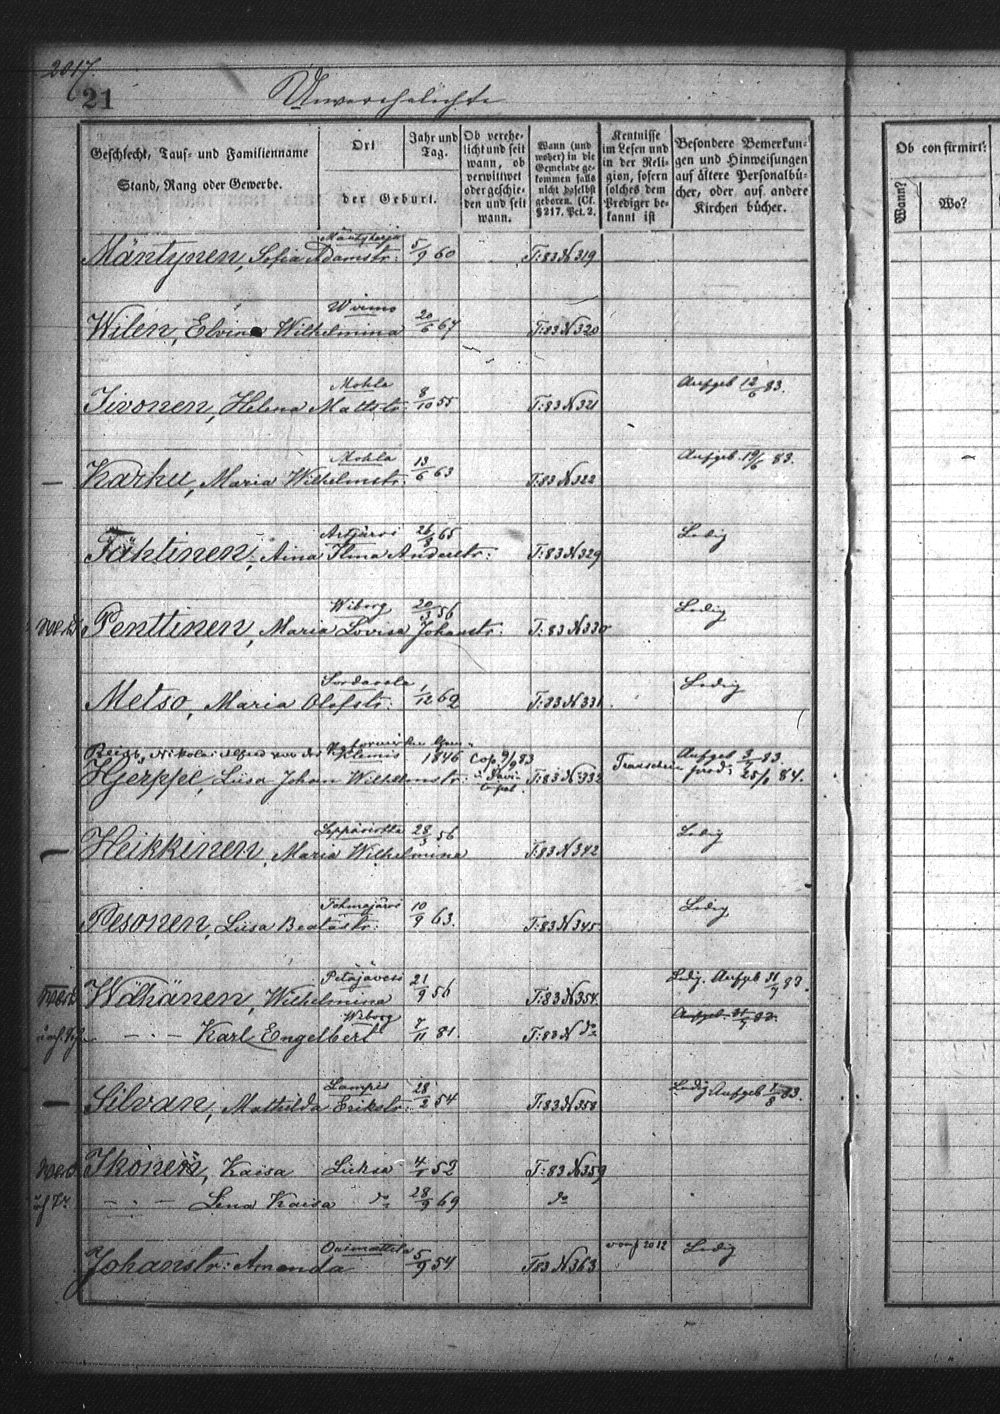 2017.
21 Unverehelichte
Geschlecht, Tauf- und Familienname
Stand, Rang oder Gewerbe.
Ort
Jahr und
Tag.
der Geburt.
Ob verehe-
licht und seit
wann, ob
verwittwet
oder geschie-
den und seit
wann.
Wann (und
woher) in die
Gemeinde ge-
kommen falls
nicht daselbst
geboren. (Cf.
§ 217. Pct. 2.
Kentnisse
im Lesen und
in der Reli-
gion, sofern
solches dem
Prediger be-
kannt ist
Besondere Bemerkun-
gen und Hinweisungen
auf ältere Personalbü-
cher, oder auf andere
Kirchen bücher.
Ob confirmirt:
Wann?
Wo?
Mäntyharju
Mäntynen, Sofia Adamstr: 5/9 60 T: 83 N 319
Wirmo
Wilen, Elvira Wilhelmina 20/6 67 T: 83 N 320
Mohla Aufgeb 12/6 83.
Iivonen, Helena Mattstr: 8/10 55 T: 83 N 321
Mohla Aufgeb. 19/6 83.
Karhu, Maria Wilhelmstr: 13/6 63 T: 83 N 322
Artjärvi 26/8 65 Ledig
Tähtinen, Aina Ilma Anderstr: T: 83 N 329
Wiborg 20/3 56 Ledig
Penttinen, Maria Lovisa Johanstr: T: 83 N 330
Sordavala Ledig
Metso, Maria Olofstr: 1/12 62 T: 83 N 331
Nikolai Alfred von der 1846 Cop. 9/9 83 Aufgeb 3/7 83.
Hjerppe, Liisa Johan Wilhelmstr: T: 83 N 332 Trauschein 25/1 84.
Leppävirta 28/3 56 Ledig
Heikkinen, Maria Wilhelmina T: 83 N 342
Tohmajärvi Ledig
Pesonen, Liisa Beatastr: 10/9 63. T: 83 N 345
Petäjävesi Ledig. Aufgeb 31/7 83.
Wähänen, Wilhelmina 21/9 56 T: 83 N 354
Wiborg
— · — Karl Engelbert 7/11 81. T: 83 N do
Lampis Ledig Aufgeb 7/8 83.
Silvan, Mathilda Erikstr: 28/2 54 T: 83 N 358
Ikonen, Kaisa Lieksa 4/1 52 T: 83 N 359
— · — Lena Kaisa do 28/9 69 do
Orimattila Ledig
Johanstr: Amanda 5/9 54 T 83 N 363